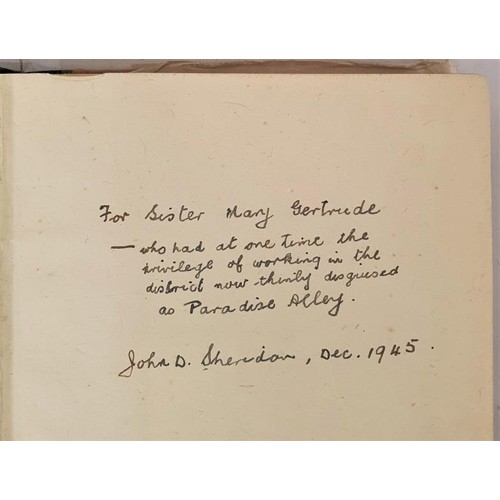 For Sister Mary Gertrude
— who had at one time the
privilege of working in the
district now thinly disguised
as Paradise Alley.
John D. Sheridan, Dec. 1945.